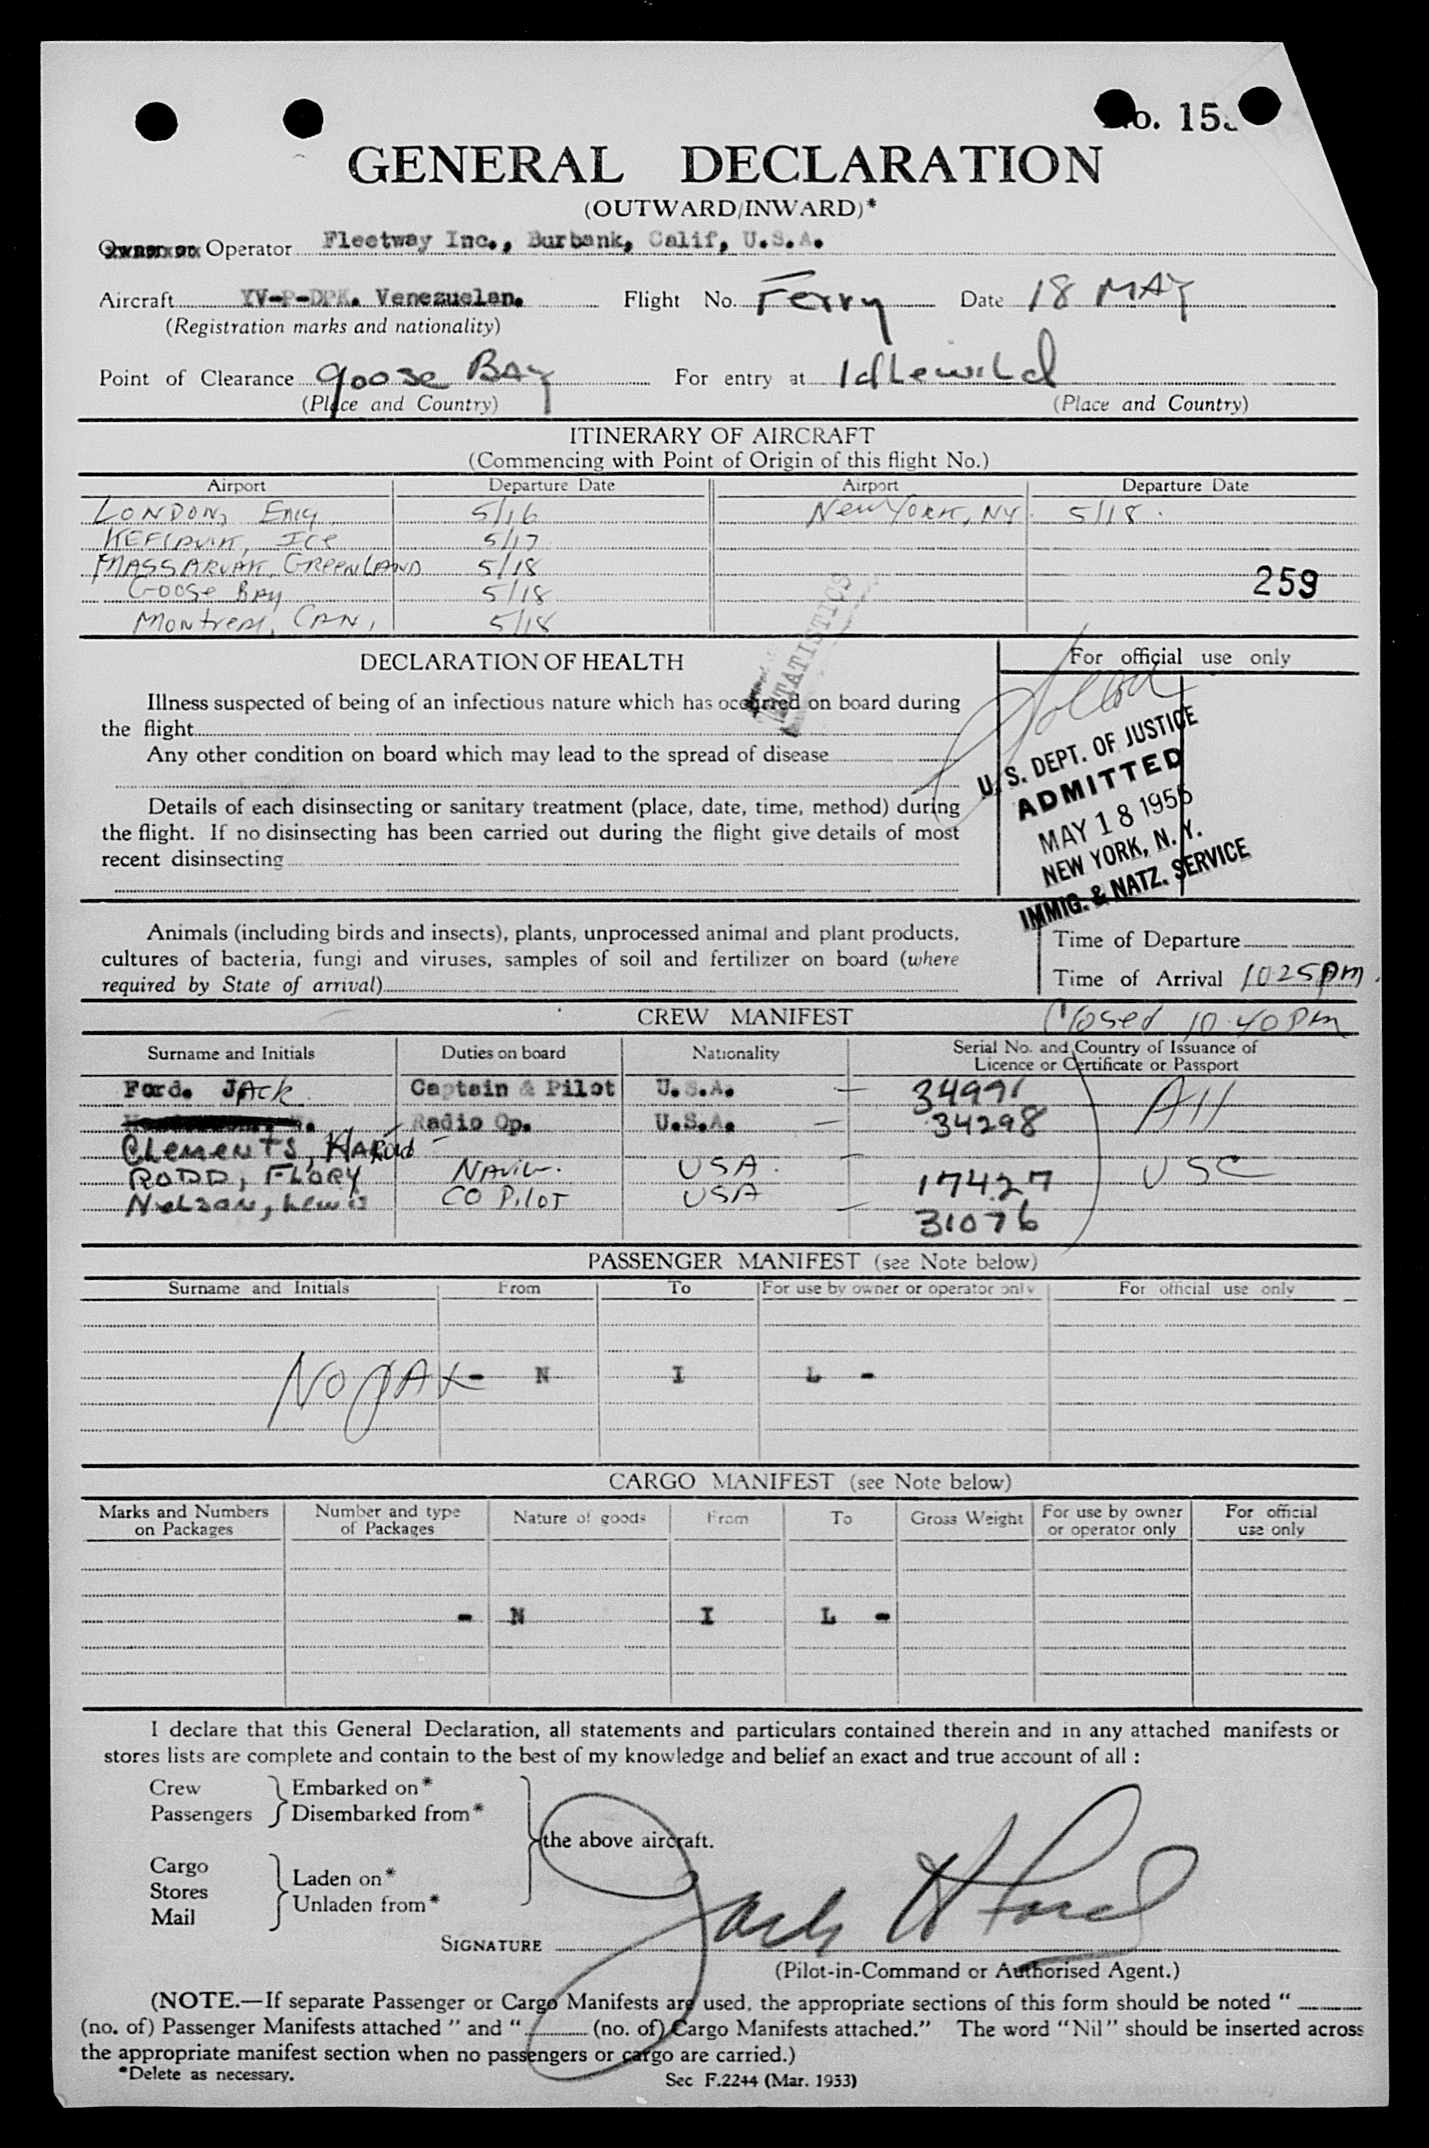 No. 15
GENERAL DECLARATION
(OUTWARD/INWARD)*
Operator Fleetway Inc., Burbank, Calif, U.S.A.
Aircraft YV-P-DPK. Venezuelan. Flight No. Ferry Date 18 MAY
(Registration marks and nationality)
Point of Clearance Goose BAY For entry at Idlewild
(Place and Country) (Place and Country)
ITINERARY OF AIRCRAFT
(Commencing with Point of Origin of this flight No.)
Airport Departure Date Airport Departure Date
LONDON, Eng 5/16 New YORK, NY. 5/18.
KEFLAVIK, Ice 5/17
MASSARUAK, GREENLAND 5/18
Goose Bay 5/18 259
Montreal, CAN, 5/18
STATISTICS
DECLARATION OF HEALTH For official use only
Illness suspected of being of an infectious nature which has occurred on board during
the flight
Any other condition on board which may lead to the spread of disease
Details of each disinsecting or sanitary treatment (place, date, time, method) during
the flight. If no disinsecting has been carried out during the flight give details of most
recent disinsecting
U.S. DEPT. OF JUSTICE
ADMITTED
MAY 18 1955
NEW YORK, N.Y.
IMMIG. & NATZ. SERVICE
Animals (including birds and insects), plants, unprocessed animal and plant products,
cultures of bacteria, fungi and viruses, samples of soil and fertilizer on board (where
required by State of arrival)
Time of Departure
Time of Arrival 10 25 pm.
CREW MANIFEST Closed 10 40 pm
Surname and Initials Duties on board Nationality Serial No. and Country of Issuance of
Licence or Certificate or Passport
Ford. JAck Captain & Pilot U.S.A. - 34991 All
Radio Op. U.S.A. - 34298
Clements, Harold
RODD, FLORY Navig. USA. - 17427 USC
Nelson, Lewis CO PiloT USA - 31076
PASSENGER MANIFEST (see Note below)
Surname and Initials From To For use by owner or operator only For official use only
NO PAX - N I L -
CARGO MANIFEST (see Note below)
Marks and Numbers on Packages Number and type of Packages Nature of goods From To Gross Weight For use by owner or operator only For official use only
- N I L -
I declare that this General Declaration, all statements and particulars contained therein and in any attached manifests or
stores lists are complete and contain to the best of my knowledge and belief an exact and true account of all :
Crew Embarked on*
Passengers Disembarked from*
the above aircraft.
Cargo Laden on*
Stores Unladen from*
Mail
SIGNATURE Jack H Ford
(Pilot-in-Command or Authorised Agent.)
(NOTE.—If separate Passenger or Cargo Manifests are used, the appropriate sections of this form should be noted "
(no. of) Passenger Manifests attached" and " (no. of) Cargo Manifests attached." The word "Nil" should be inserted across
the appropriate manifest section when no passengers or cargo are carried.)
*Delete as necessary. Sec F.2244 (Mar. 1953)